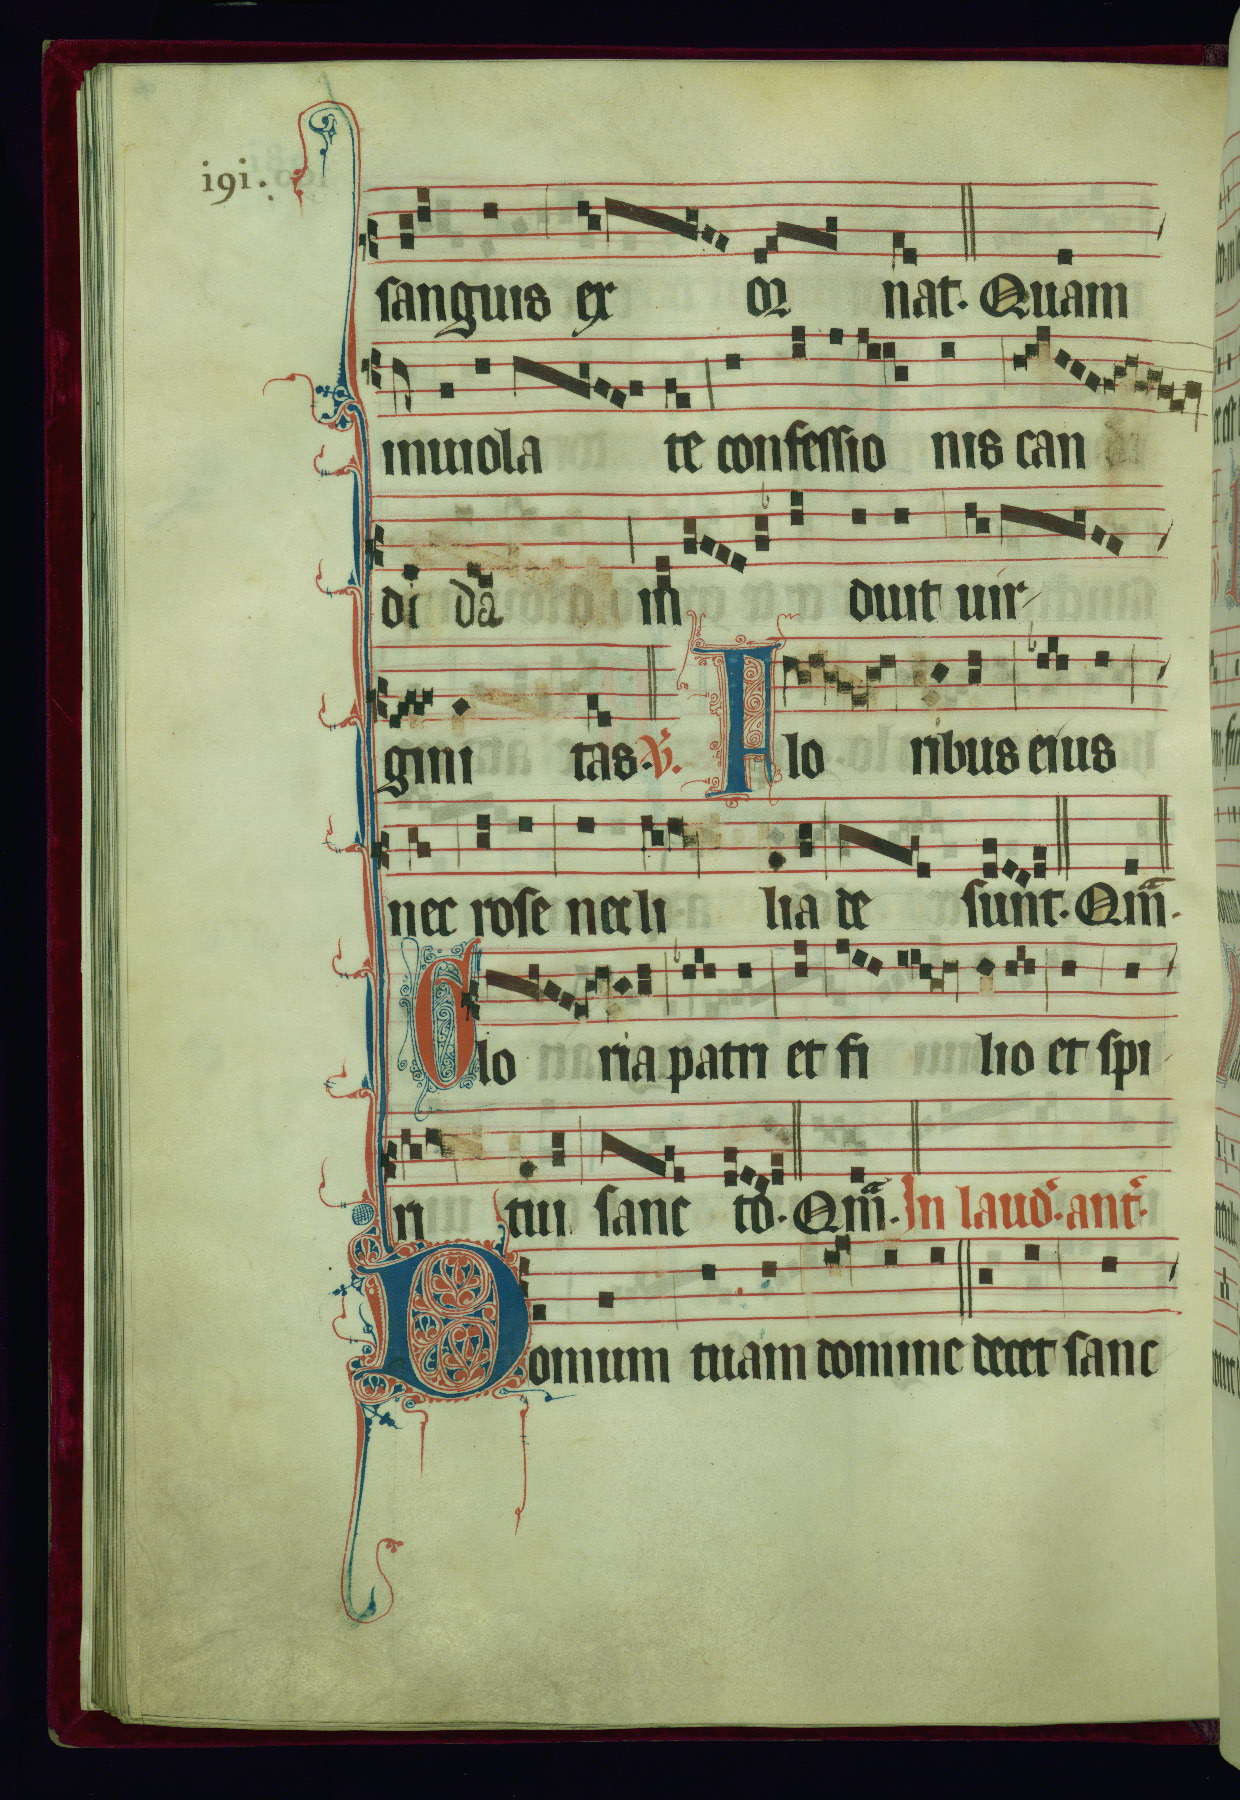 191.
sanguis ex or nat. Quam
inuiola te confessio nis can
di da in duit uir
gini tas. V̓. Flo ribus eius
nec rose nec li lia de sunt. Qm̄.
Glo ria patri et fi lio et spi
ri tui sanc to. Qm̄. In laud̓. ant̓.
Domum tuam domine decet sanc